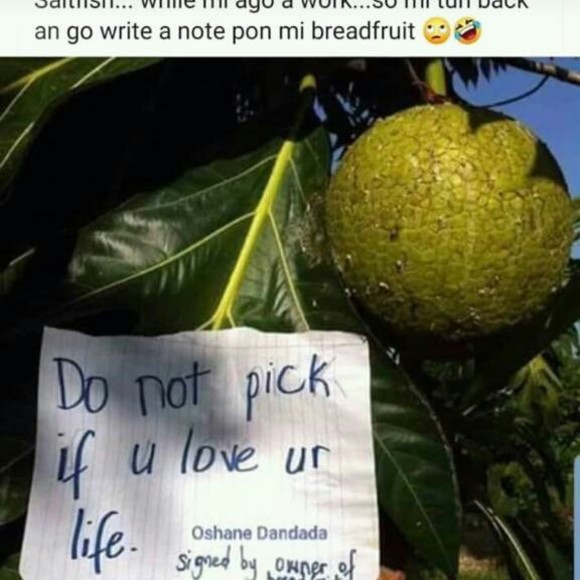 Saltfish... while mi ago a work...so mi tun back
an go write a note pon mi breadfruit 🙄🤣
Do not pick
if u love ur
life.
Oshane Dandada
signed by owner of